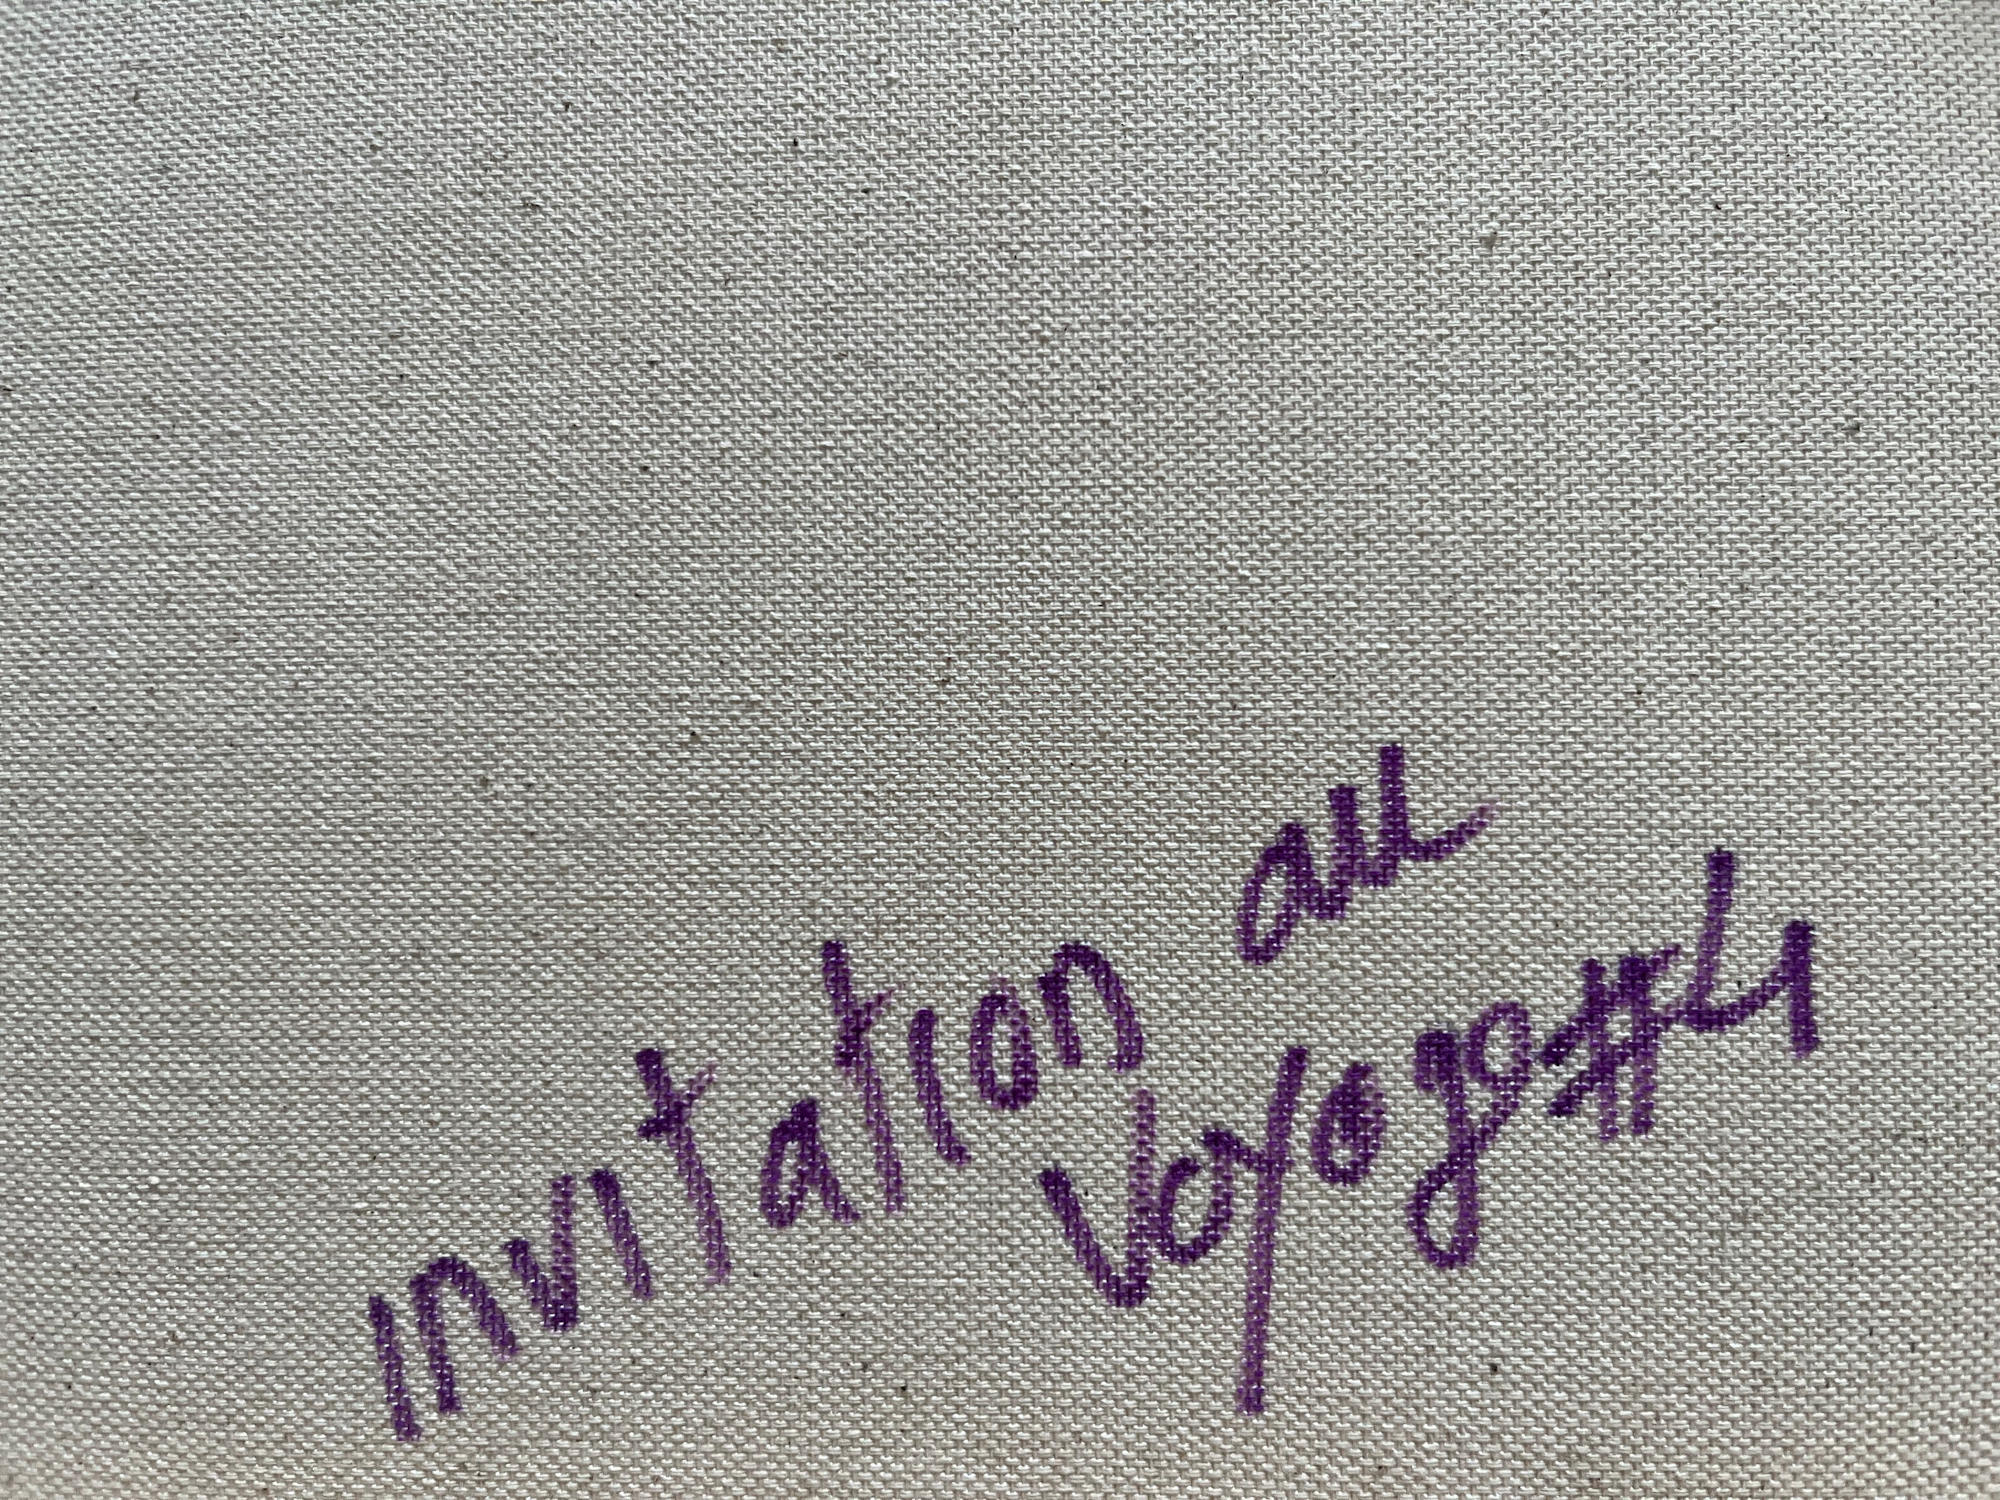 invitation au
Voyage #4